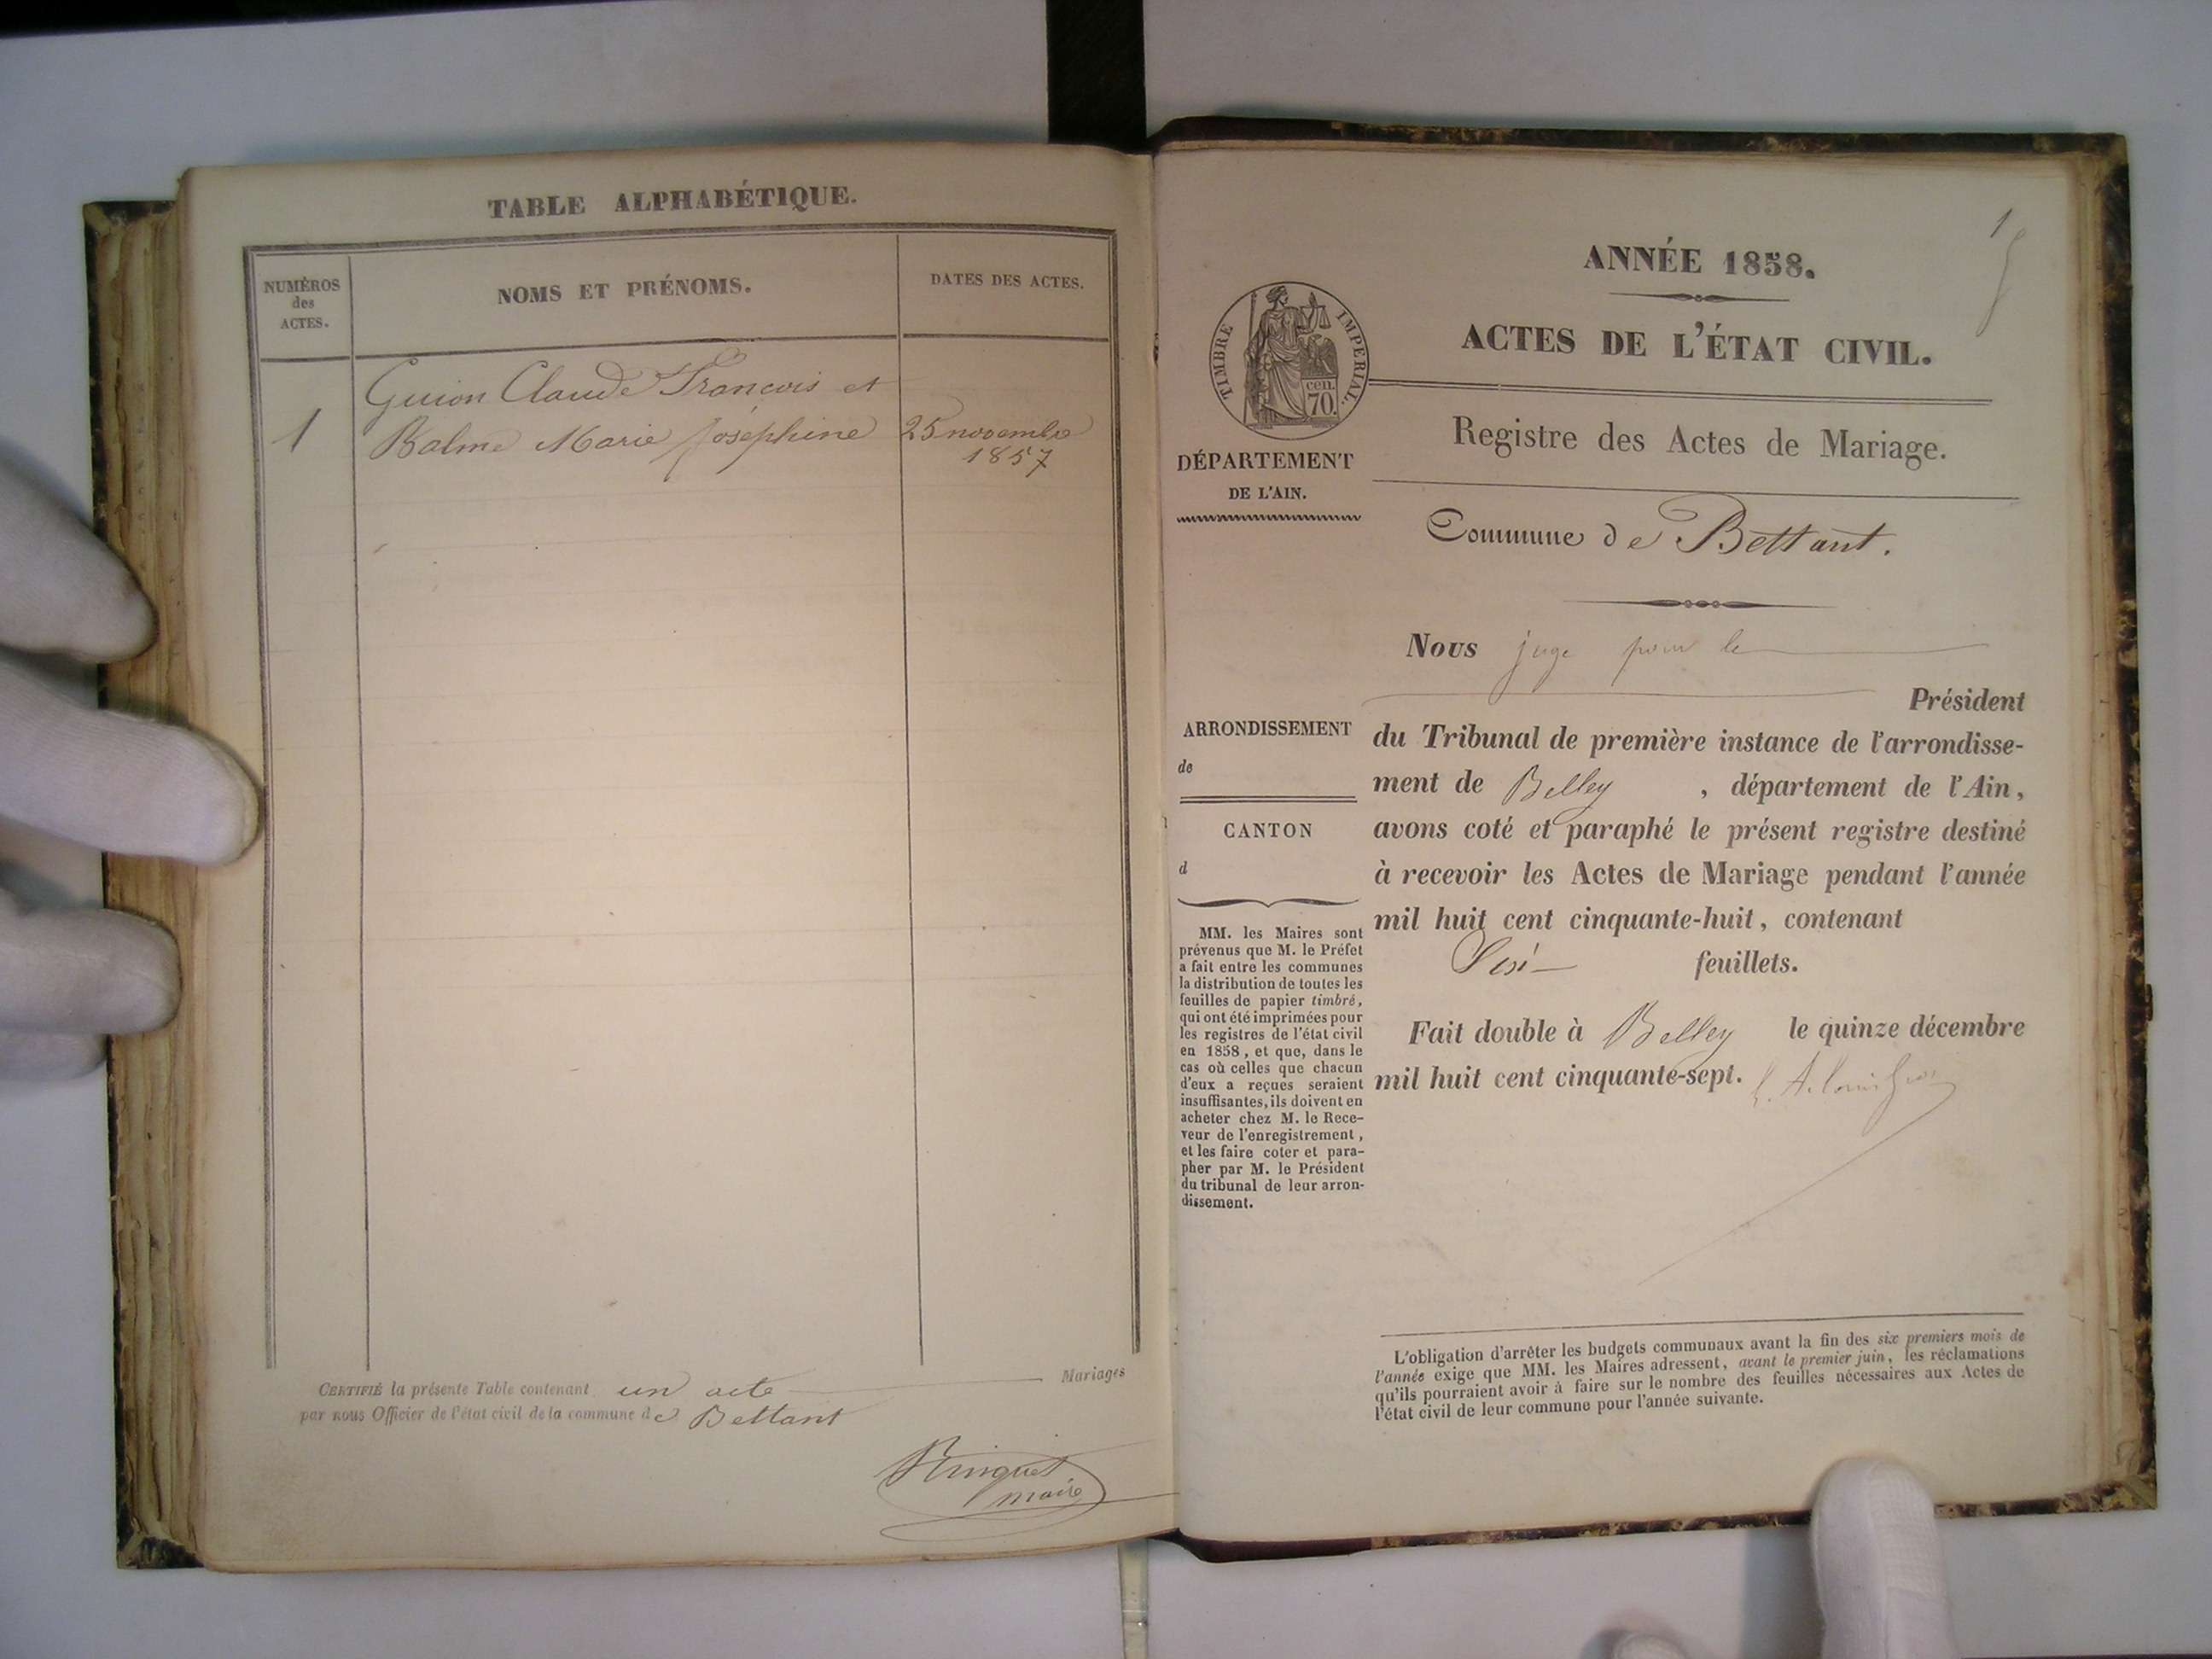 TABLE ALPHABÉTIQUE.
NUMÉROS
des
ACTES.
NOMS ET PRÉNOMS.
DATES DES ACTES.
Guion Claude François et
1
Balme Marie Joséphine
25 novembre
1857
CERTIFIÉ la présente Table contenant un acte Mariages
par nous Officier de l'état civil de la commune de Bettant
maire
1
ANNÉE 1858.
ACTES DE L'ÉTAT CIVIL.
TIMBRE IMPERIAL.
cen.
70.
DÉPARTEMENT
DE L'AIN.
Registre des Actes de Mariage.
Commune de Bettant.
Nous juge pour le
Président
du Tribunal de première instance de l'arrondisse-
ment de Belley , département de l'Ain,
avons coté et paraphé le présent registre destiné
à recevoir les Actes de Mariage pendant l'année
mil huit cent cinquante-huit, contenant
feuillets.
Fait double à Belley le quinze décembre
mil huit cent cinquante-sept.
ARRONDISSEMENT
de
CANTON
d
MM. les Maires sont
prévenus que M. le Préfet
a fait entre les communes
la distribution de toutes les
feuilles de papier timbré,
qui ont été imprimées pour
les registres de l'état civil
en 1858, et que, dans le
cas où celles que chacun
d'eux a reçues seraient
insuffisantes, ils doivent en
acheter chez M. le Rece-
veur de l'enregistrement,
et les faire coter et para-
pher par M. le Président
du tribunal de leur arron-
dissement.
L'obligation d'arrêter les budgets communaux avant la fin des six premiers mois de
l'année exige que MM. les Maires adressent, avant le premier juin, les réclamations
qu'ils pourraient avoir à faire sur le nombre des feuilles nécessaires aux Actes de
l'état civil de leur commune pour l'année suivante.